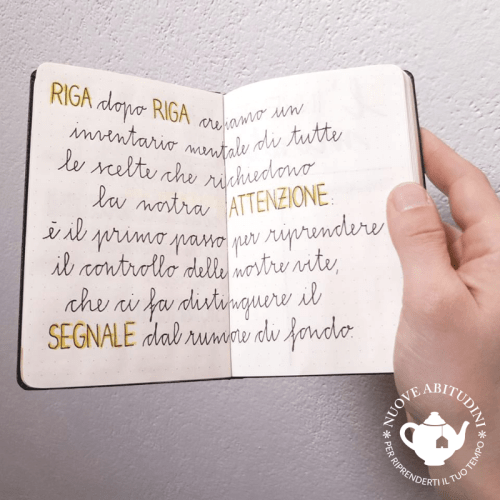 RIGA dopo RIGA creiamo un
inventario mentale di tutte
le scelte che richiedono
la nostra ATTENZIONE:
è il primo passo per riprendere
il controllo delle nostre vite,
che ci fa distinguere il
SEGNALE dal rumore di fondo.
NUOVE ABITUDINI
* PER RIPRENDERTI IL TUO TEMPO *